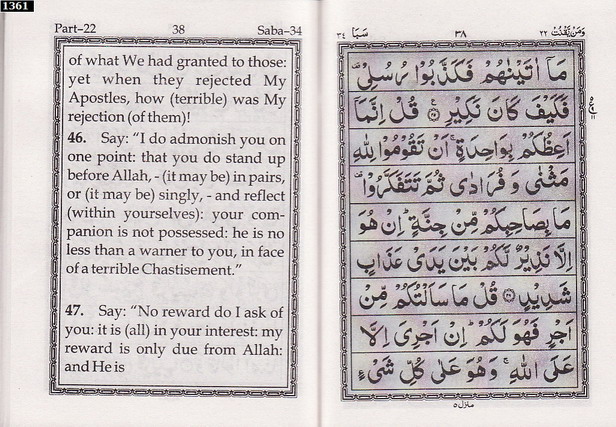 1361
Part–22 38 Saba–34
of what We had granted to those:
yet when they rejected My
Apostles, how (terrible) was My
rejection (of them)!
46. Say: “I do admonish you on
one point: that you do stand up
before Allah, - (it may be) in pairs,
or (it may be) singly, - and reflect
(within yourselves): your com-
panion is not possessed: he is no
less than a warner to you, in face
of a terrible Chastisement.”
47. Say: “No reward do I ask of
you: it is (all) in your interest: my
reward is only due from Allah:
and He is
وَمَنْ يَّقْنُتْ ٢٢ ٣٨ سَبَا ٣٤
مَاۤ اٰتَيْنٰهُمْ فَكَذَّبُوْا رُسُلِيْ
فَكَيْفَ كَانَ نَكِيْرِ ﴿٤٥﴾ قُلْ اِنَّمَاۤ
اَعِظُكُمْ بِوَاحِدَةٍ ۚ اَنْ تَقُوْمُوْا لِلّٰهِ
مَثْنٰى وَ فُرَادٰى ثُمَّ تَتَفَكَّرُوْا
مَا بِصَاحِبِكُمْ مِّنْ جِنَّةٍ ؕ اِنْ هُوَ
اِلَّا نَذِيْرٌ لَّكُمْ بَيْنَ يَدَيْ عَذَابٍ
شَدِيْدٍ ﴿٤٦﴾ قُلْ مَا سَاَلْتُكُمْ مِّنْ
اَجْرٍ فَهُوَ لَكُمْ ؕ اِنْ اَجْرِيَ اِلَّا
عَلَى اللّٰهِ ۚ وَهُوَ عَلٰى كُلِّ شَيْءٍ
منزل ٥